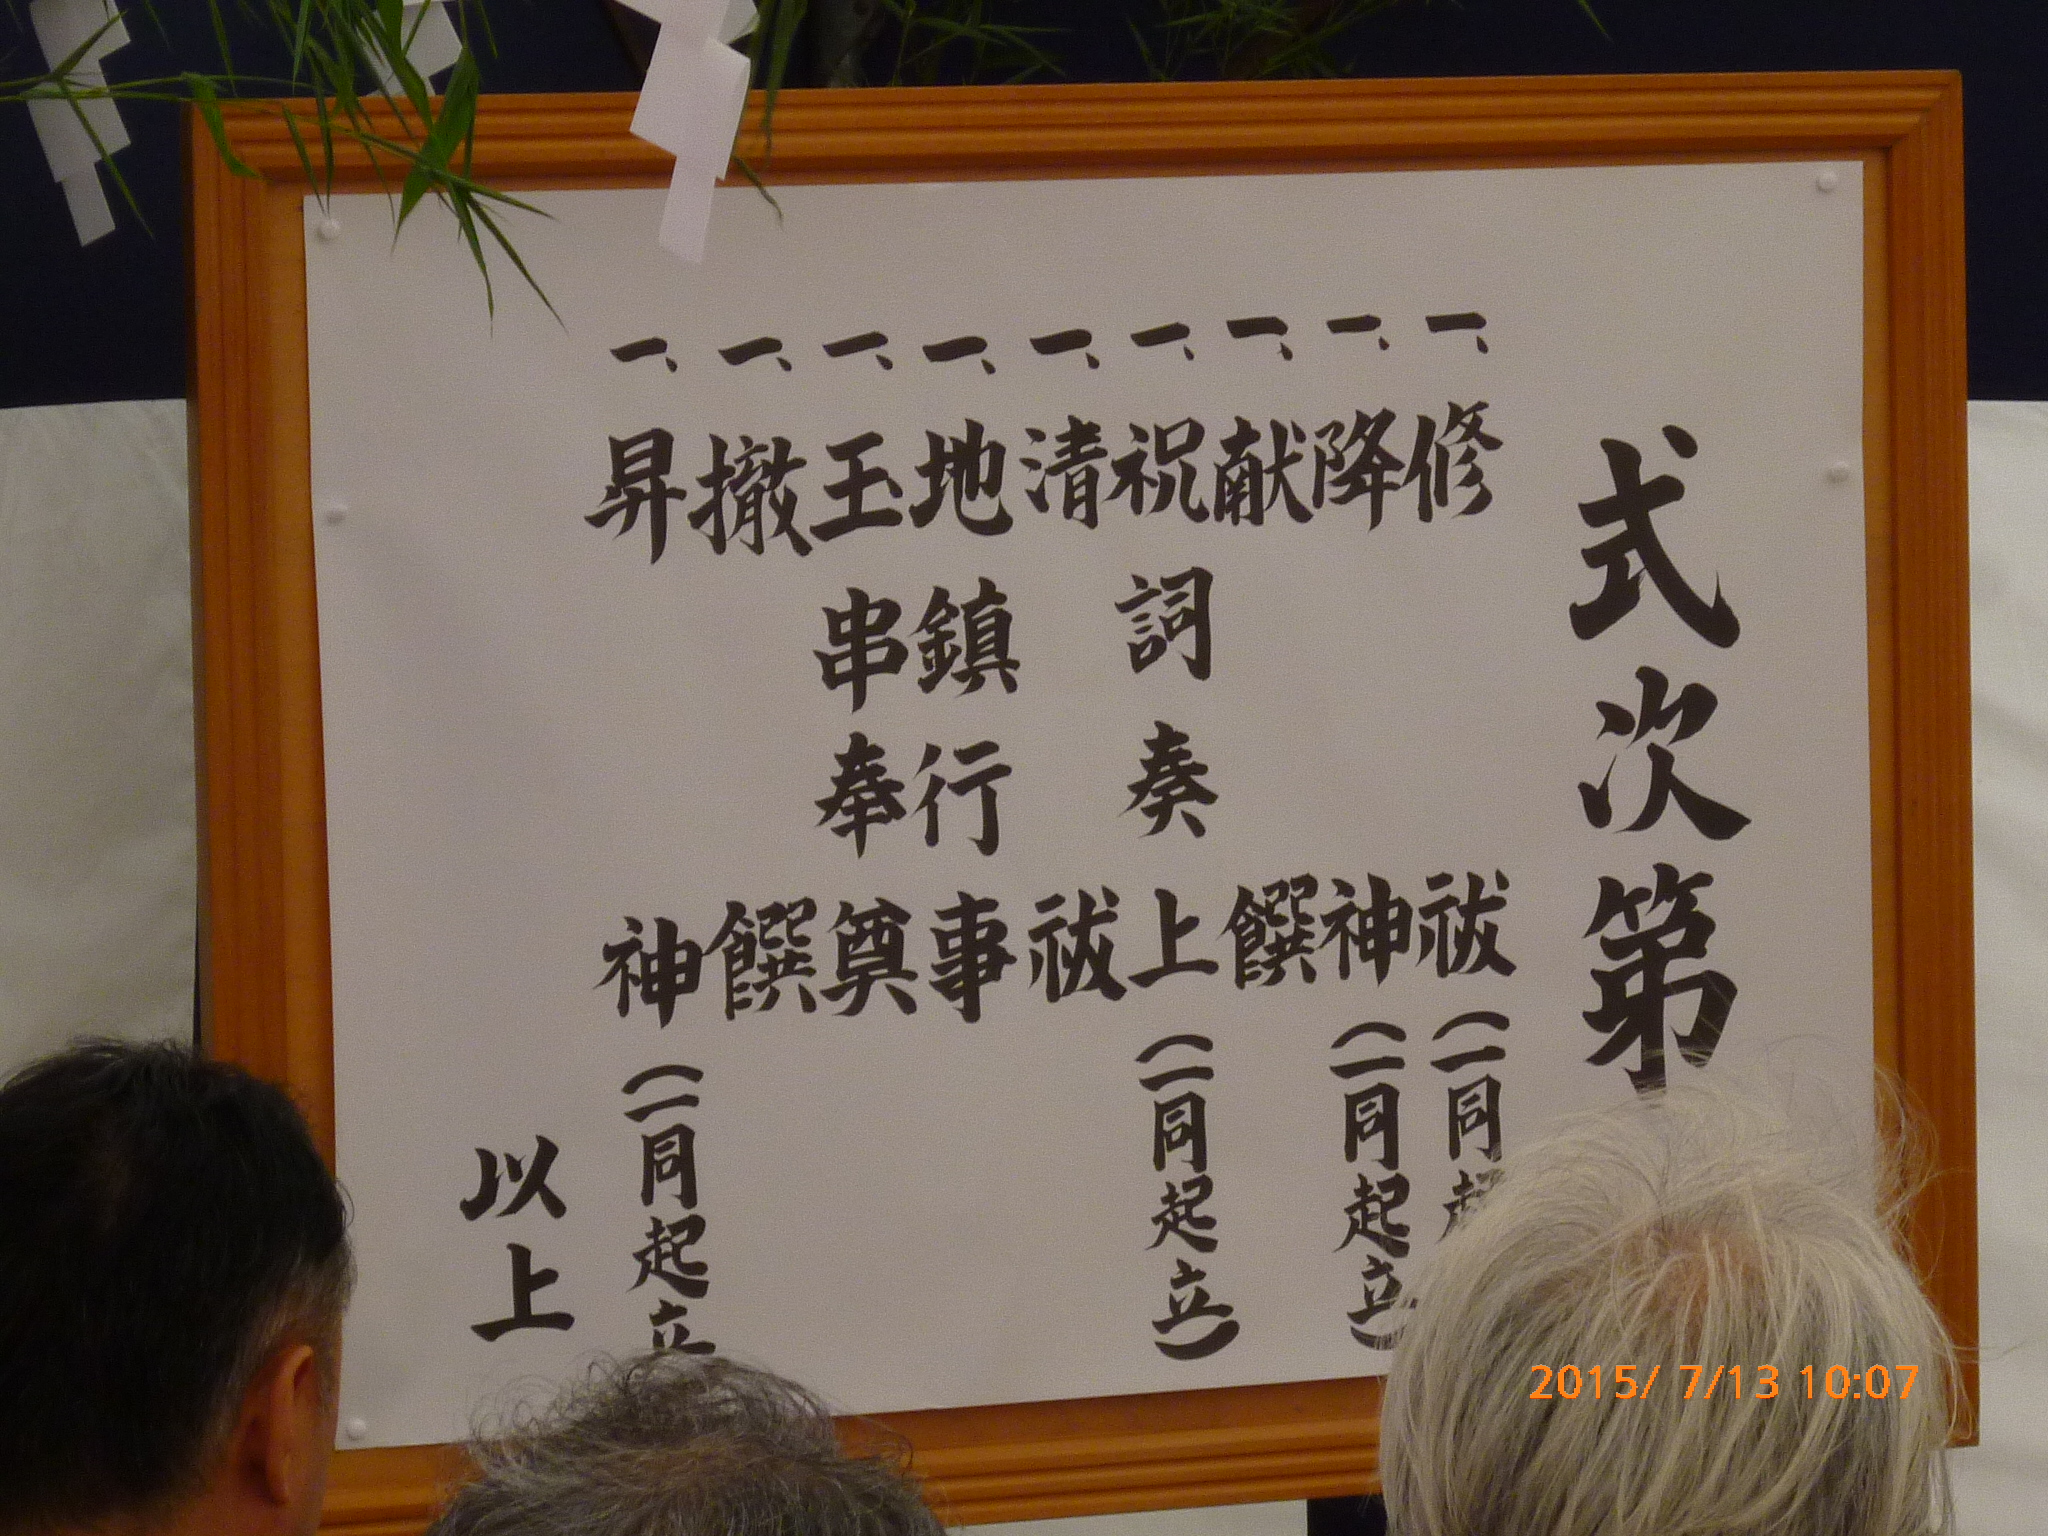 式次第
一、修祓（一同起
一、降神（一同起立）
一、献饌
一、祝詞奏上（一同起立）
一、清祓
一、地鎮行事
一、玉串奉奠
一、撤饌
一、昇神（一同起立
以上
2015/ 7/13 10:07